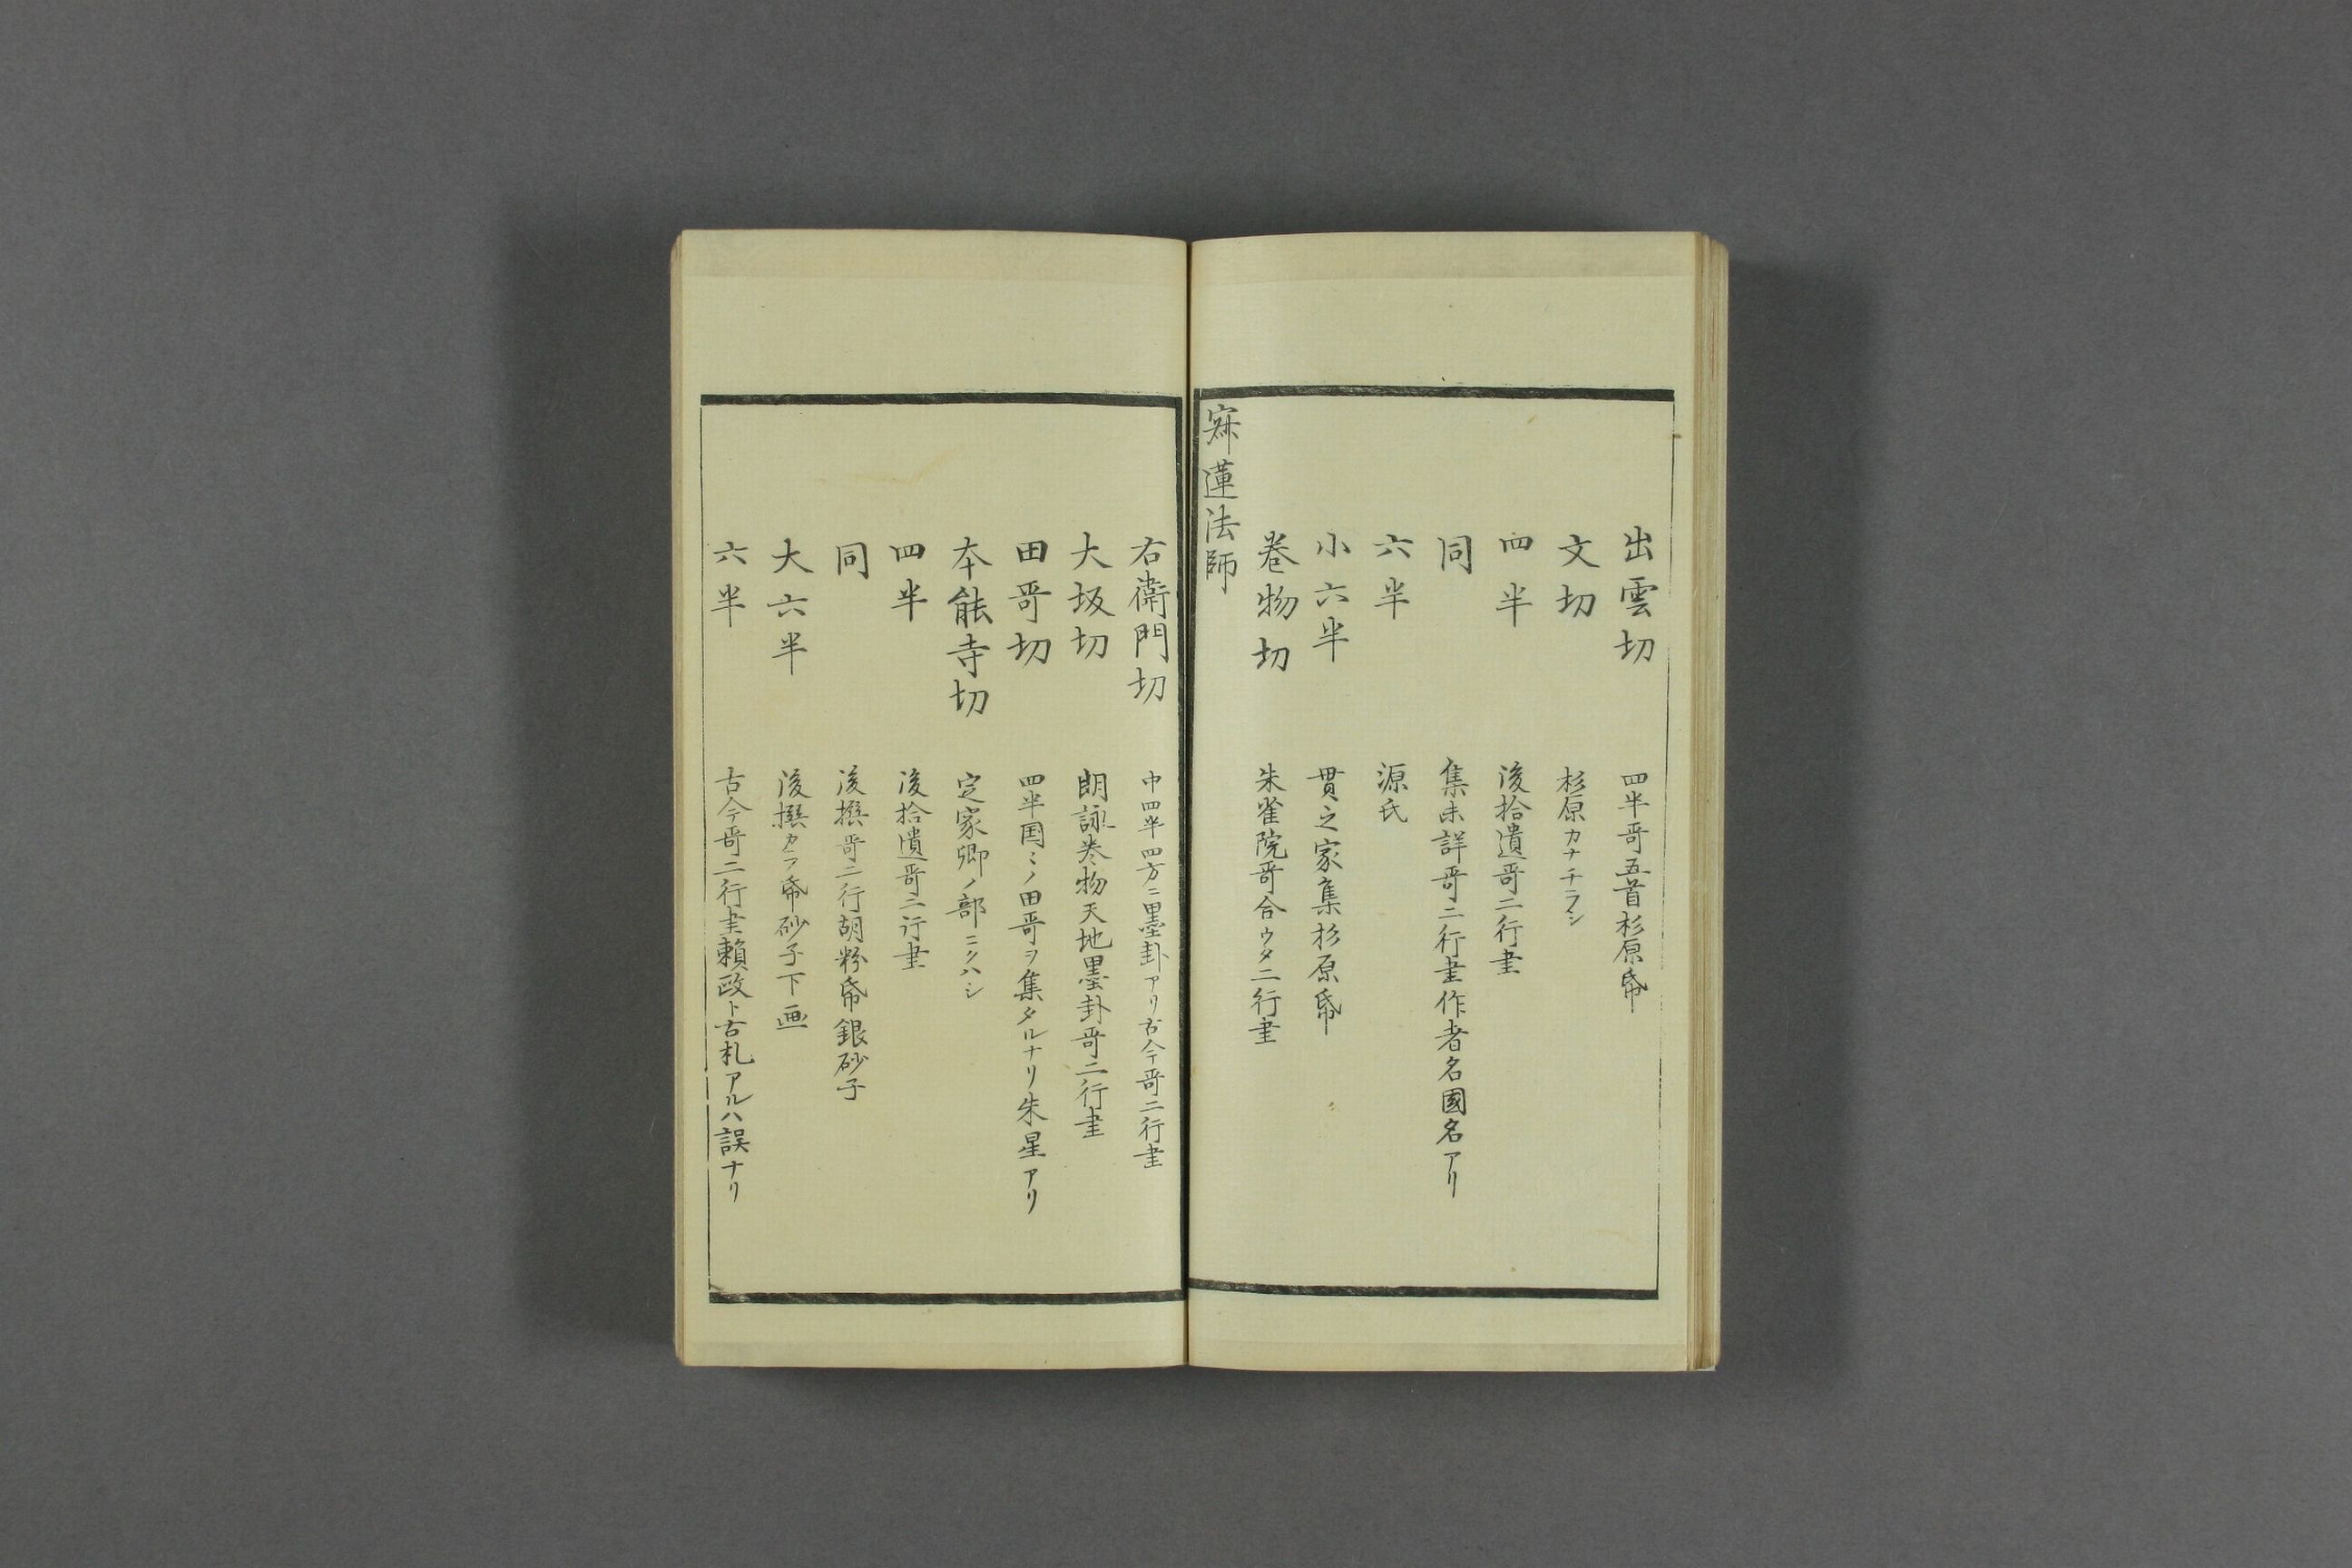 出雲切　四半哥五首杉原帋
文切　杉原カナチラシ
四半　後拾遺哥二行書
同　集未詳哥二行書作者名國名アリ
六半　源氏
小六半　貫之家集杉原帋
巻物切　朱雀院哥合ウタ二行書
寂蓮法師
右衛門切　中四半四方ニ墨卦アリ古今哥二行書
大坂切　朗詠巻物天地墨卦哥二行書
田哥切　四半国〻ノ田哥ヲ集タルナリ朱星アリ
本能寺切　定家卿ノ部ニクハシ
四半　後拾遺哥二行書
同　後撰哥二行胡粉帋銀砂子
大六半　後撰カラ帋砂子下画
六半　古今哥二行書頼政ト古札アルハ誤ナリ